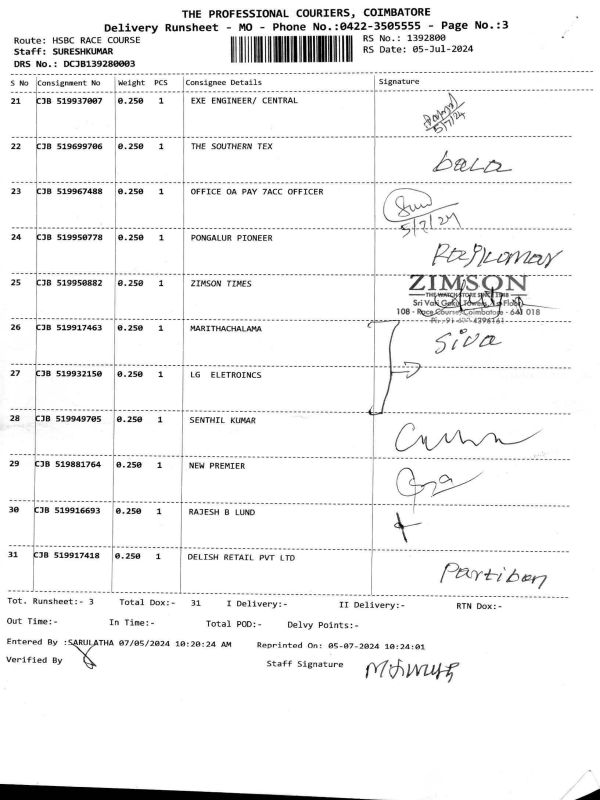 THE PROFESSIONAL COURIERS, COIMBATORE
Delivery Runsheet - MO - Phone No.:0422-3505555 - Page No.:3
Route: HSBC RACE COURSE RS No.: 1392800
Staff: SURESHKUMAR RS Date: 05-Jul-2024
DRS No.: DCJB139280003
S No Consignment No Weight PCS Consignee Details Signature
21 CJB 519937007 0.250 1 EXE ENGINEER/ CENTRAL
5/7/24
22 CJB 519699706 0.250 1 THE SOUTHERN TEX
bala
23 CJB 519967488 0.250 1 OFFICE OA PAY 7ACC OFFICER
5/7/24
24 CJB 519950778 0.250 1 PONGALUR PIONEER
Rajkumar
25 CJB 519950882 0.250 1 ZIMSON TIMES ZIMSON
THE WATCH STORE SINCE 1948
Towers, 1st Floor
108 - Race Course, Coimbatore - 641 018
26 CJB 519917463 0.250 1 MARITHACHALAMA
Siva
27 CJB 519932150 0.250 1 LG ELETROINCS
28 CJB 519949705 0.250 1 SENTHIL KUMAR
29 CJB 519881764 0.250 1 NEW PREMIER
30 CJB 519916693 0.250 1 RAJESH B LUND
31 CJB 519917418 0.250 1 DELISH RETAIL PVT LTD
Partiban
Tot. Runsheet:- 3 Total Dox:- 31 I Delivery:- II Delivery:- RTN Dox:-
Out Time:- In Time:- Total POD:- Delvy Points:-
Entered By :SARULATHA 07/05/2024 10:20:24 AM Reprinted On: 05-07-2024 10:24:01
Verified By Staff Signature